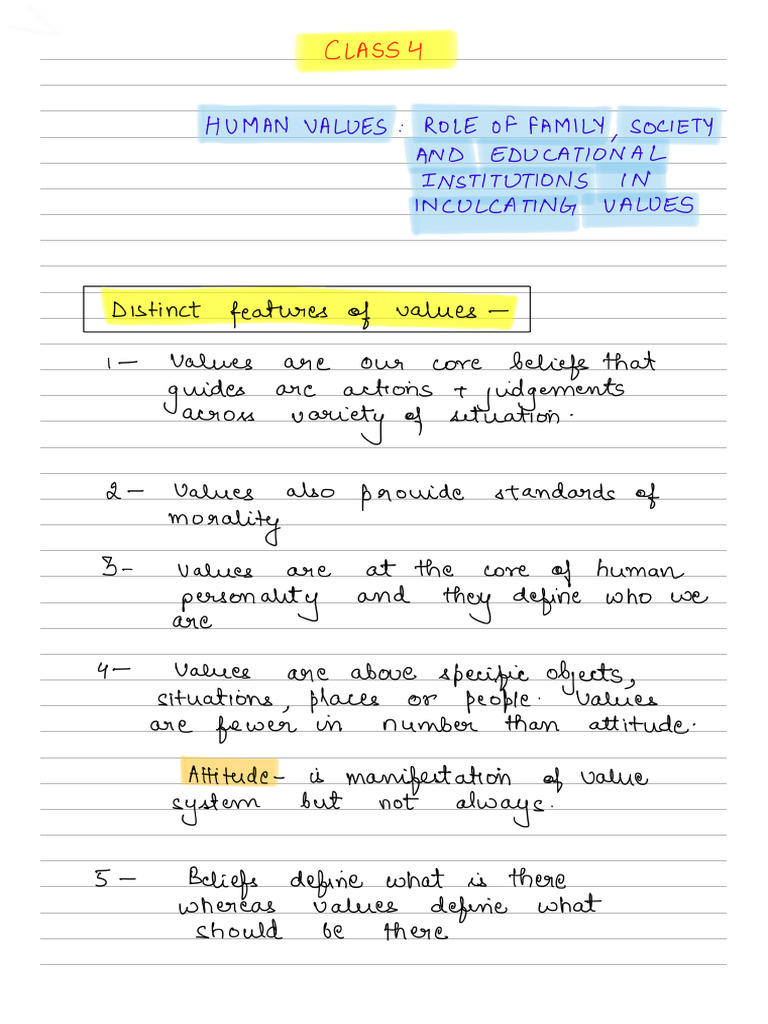 CLASS 4
HUMAN VALUES: ROLE OF FAMILY, SOCIETY
AND EDUCATIONAL
INSTITUTIONS IN
INCULCATING VALUES
Distinct features of values —
1 — Values are our core beliefs that
guides are actions + judgements
across variety of situation.
2 — Values also provide standards of
morality
3 - Values are at the core of human
personality and they define who we
are
4 — Values are above specific objects,
situations, places or people. Values
are fewer in number than attitude.
Attitude - is manifestation of value
system but not always.
5 — Beliefs define what is there
whereas values define what
should be there